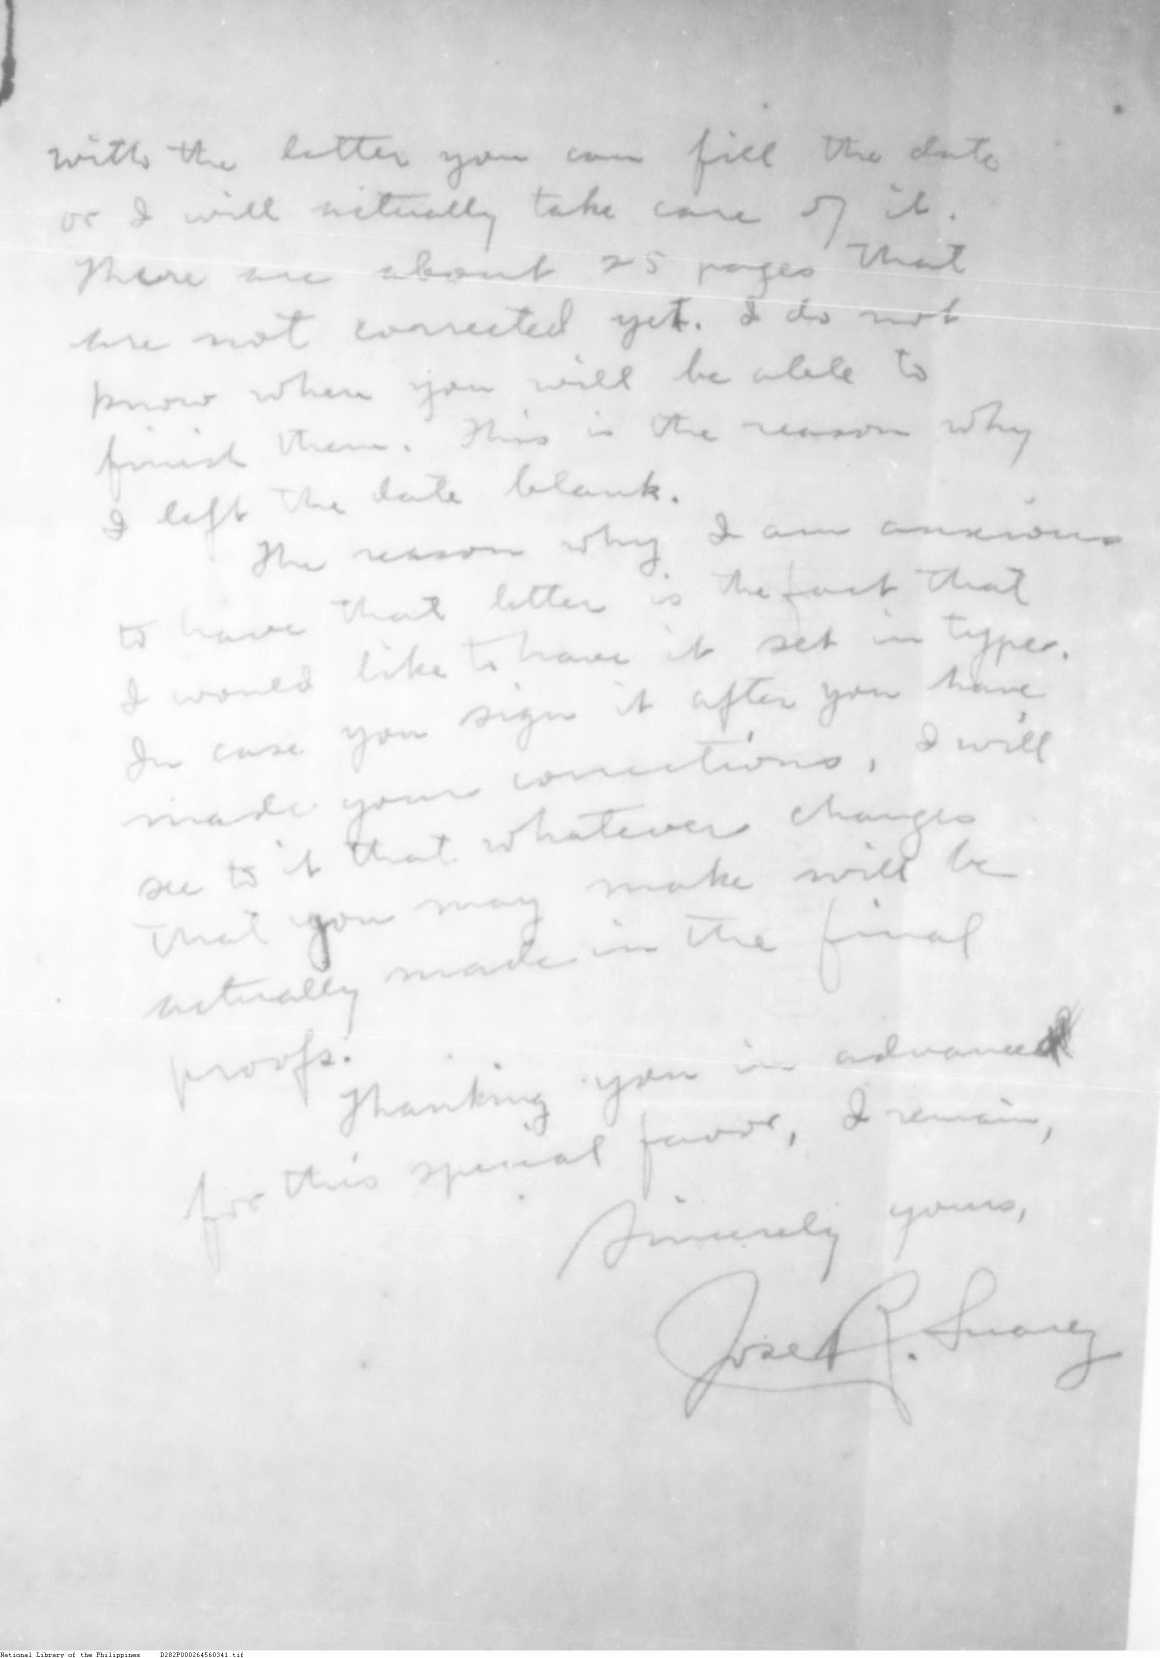 with the letter you can fill the date
or I will actually take care of it.
There are about 25 pages that
are not corrected yet. I do not
know when you will be able to
finish them. This is the reason why
I left the date blank.
The reason why I am anxious
to have that letter is the fact that
I would like to have it set in types.
In case you sign it after you have
made your corrections, I will
see to it that whatever changes
that you may make will be
actually made in the final
proofs.
Thanking you in advance
for this special favor, I remain,
Sincerely yours,
Jose R. Suarez
National Library of the Philippines D282P000264560341.tif